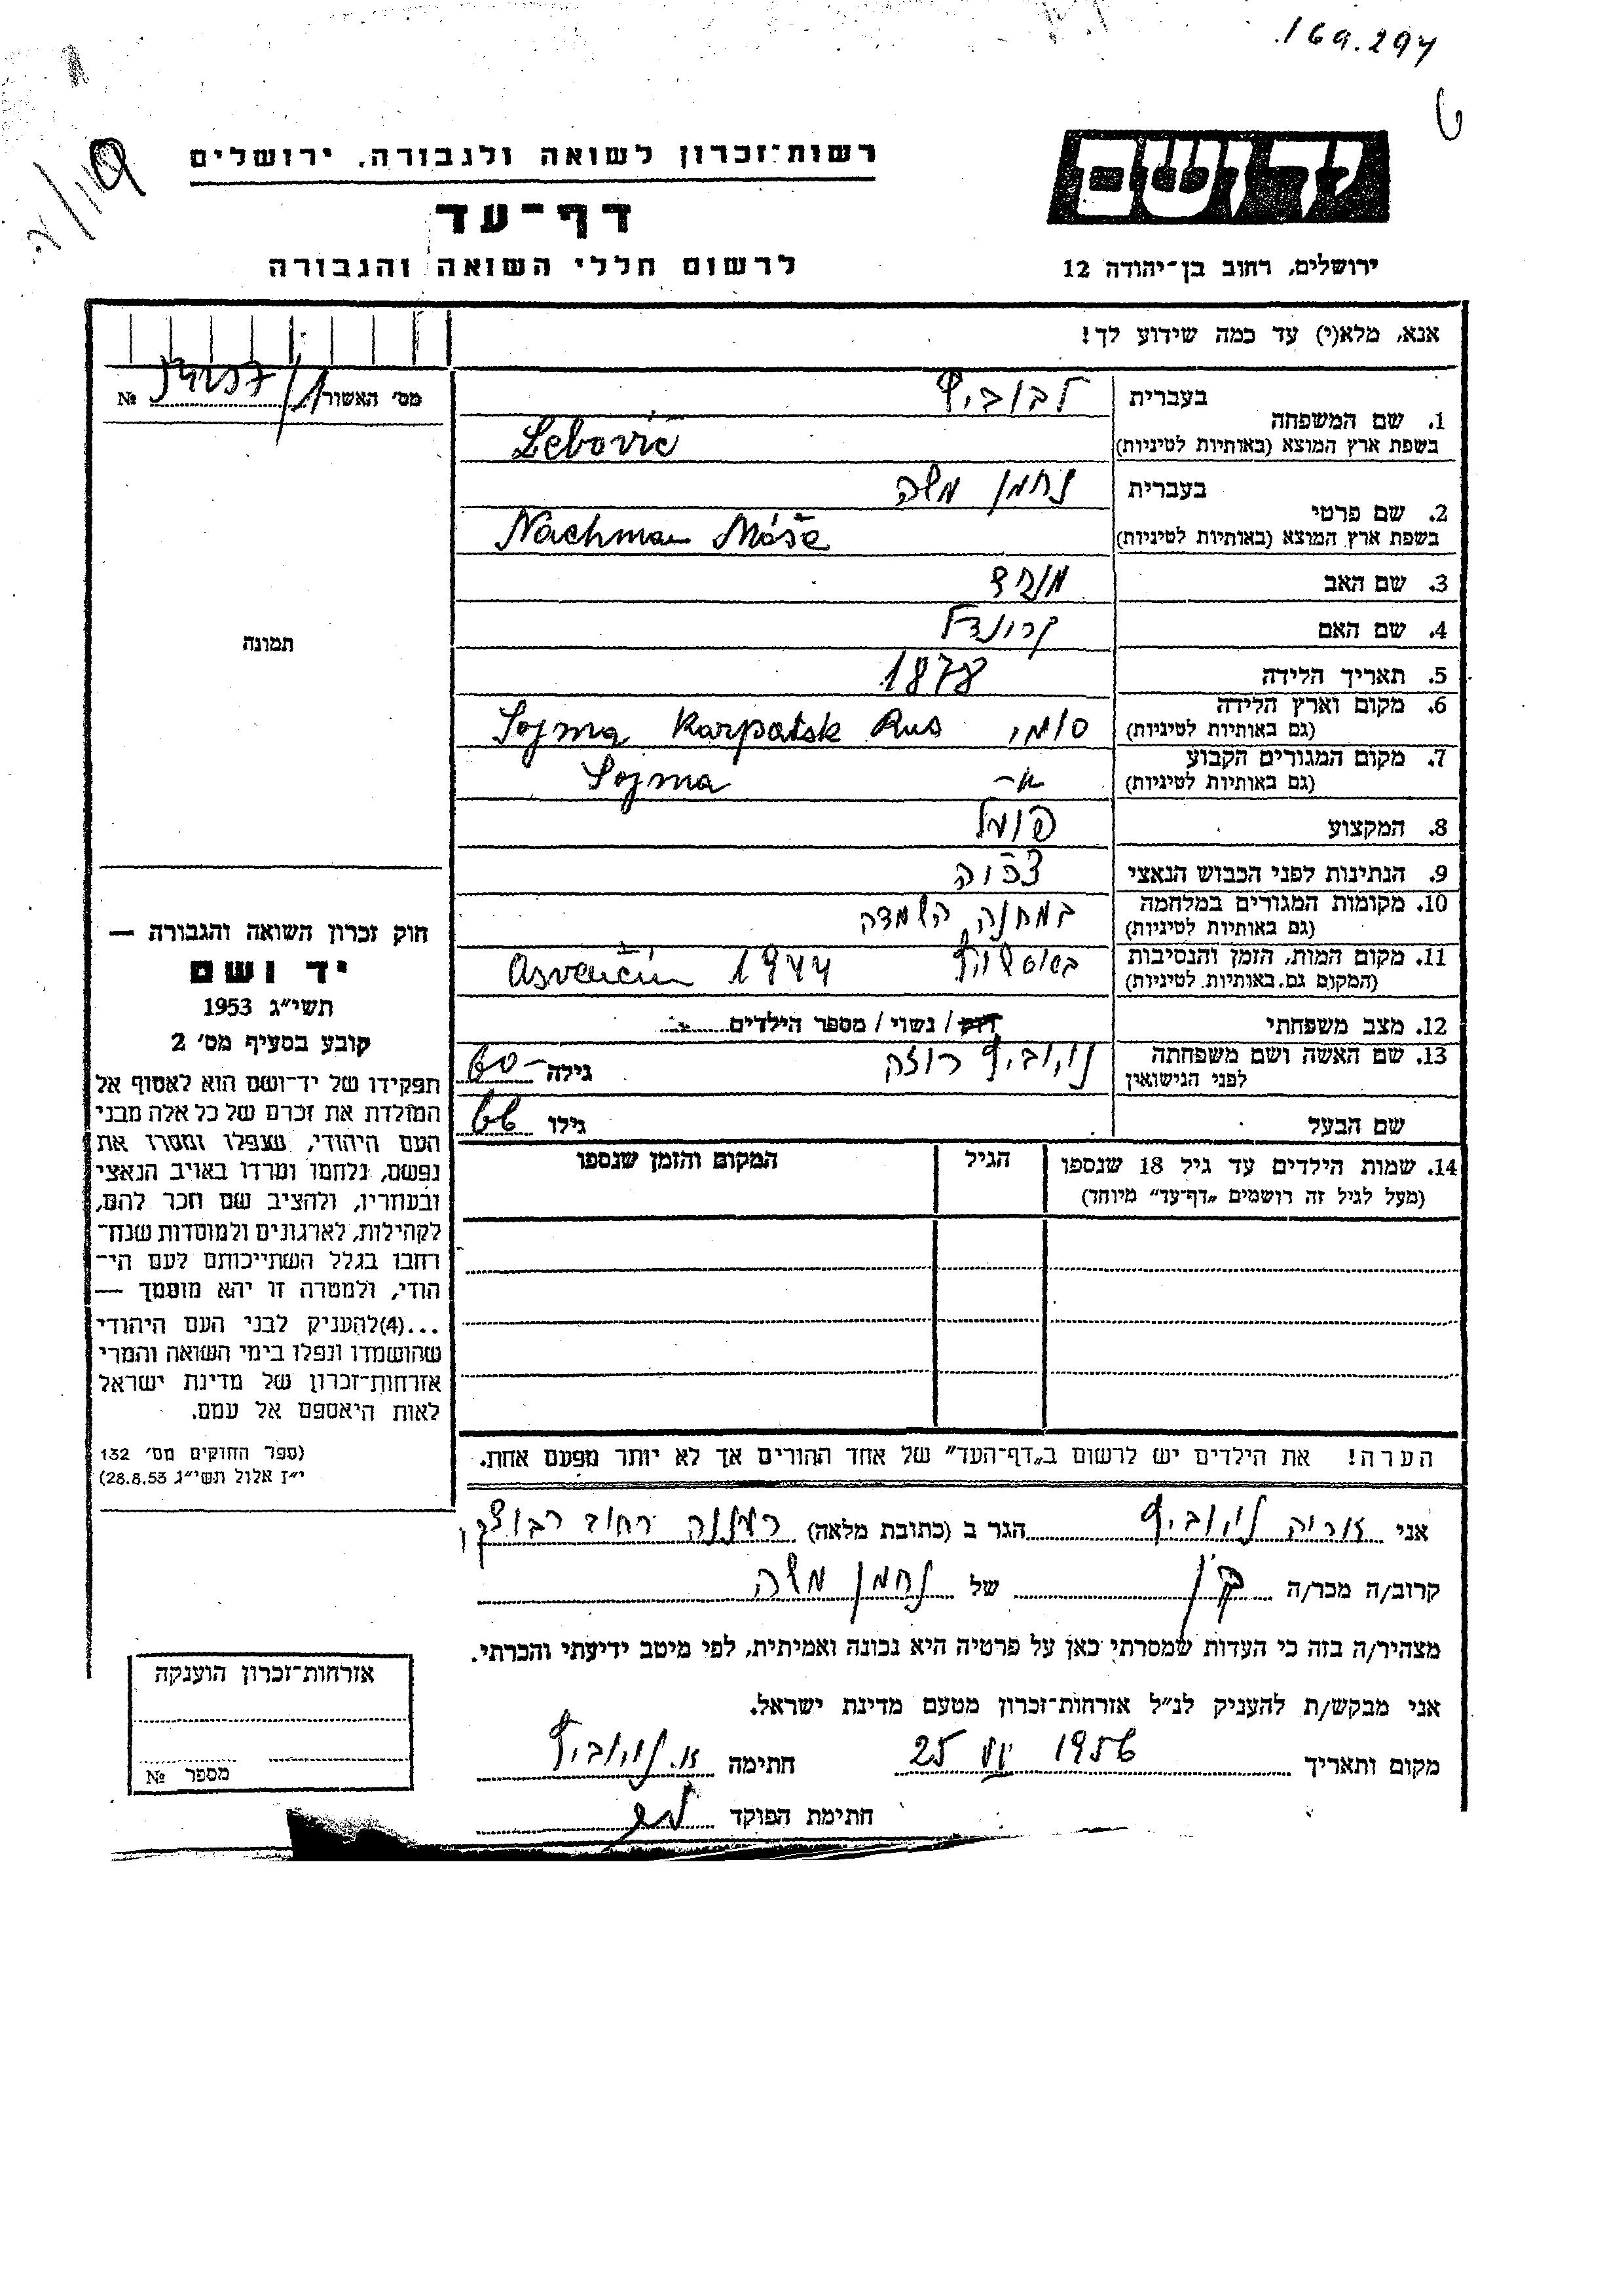 169.297
רשות־זכרון לשואה ולגבורה. ירושלים
דף־עד
לרשום חללי השואה והגבורה
יד ושם
ירושלים, רחוב בן־יהודה 12
אנא, מלא(י) עד כמה שידוע לך!
מס׳ האשור №
תמונה
בעברית
1. שם המשפחה
בשפת ארץ המוצא (באותיות לטיניות)
לבוביץ
Lebovič
בעברית
2. שם פרטי
בשפת ארץ המוצא (באותיות לטיניות)
נחמן משה
Nachman Móše
3. שם האב
4. שם האם
5. תאריך הלידה 1878
6. מקום וארץ הלידה
(גם באותיות לטיניות)
Sojma Karpatsk Rus
7. מקום המגורים הקבוע
(גם באותיות לטיניות)
Sojma
8. המקצוע פועל
9. הנתינות לפני הכבוש הנאצי
10. מקומות המגורים במלחמה
(גם באותיות לטיניות)
במחנה השמדה
11. מקום המות, הזמן והנסיבות
(המקום גם.באותיות. לטיניות)
Osvenčin 1944
12. מצב משפחתי רוק / נשוי / מספר הילדים
13. שם האשה ושם משפחתה
לפני הנישואין
רוזה גילה 60
שם הבעל גילו 66
14. שמות הילדים עד גיל 18 שנספו
(מעל לגיל זה רושמים „דף־עד״ מיוחד)
הגיל
המקום והזמן שנספו
הערה! את הילדים יש לרשום ב„דף־העד״ של אחד ההורים אך לא יותר מפעם אחת.
חוק זכרון השואה והגבורה —
יד ושם
תשי״ג 1953
קובע בסעיף מס׳ 2
תפקידו של יד־ושם הוא לאסוף אל
המולדת את זכרם של כל אלה מבני
העם היהודי, שנפלו ומסרו את
נפשם, נלחמו ומרדו באויב הנאצי
ובעוזריו, ולהציב שם וזכר להם,
לקהילות, לארגונים ולמוסדות שנח־
רחבו בגלל השתייכותם לעם הי־
הודי, ולמטרה זו יהא מוסמך —
...(4)להעניק לבני העם היהודי
שהושמדו ונפלו בימי השואה והמרי
אזרחות־זכרון של מדינת ישראל
לאות היאספם אל עמם.
(ספר החוקים מס׳ 132
י״ז אלול תשי״ג 28.8.53)
אני אריה הגר ב (כתובת מלאה) רעננה רחוב
קרוב/ה מכר/ה בן של נחמן משה
מצהיר/ה בזה כי העדות שמסרתי כאן על פרטיה היא נכונה ואמיתית, לפי מיטב ידיעתי והכרתי.
אני מבקש/ת להעניק לנ״ל אזרחות־זכרון מטעם מדינת ישראל.
מקום ותאריך 25 1956 חתימה
חתימת הפוקד
אזרחות־זכרון הוענקה
מספר №